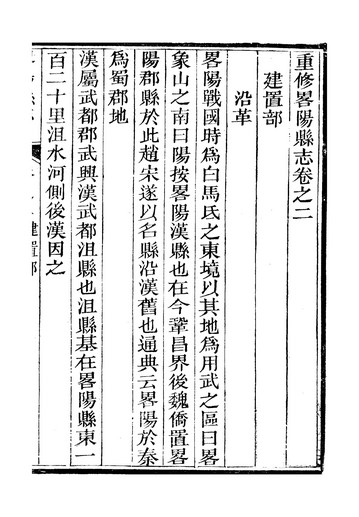 重修畧陽縣志卷之二
建置部
沿革
畧陽戰國時爲白馬氐之東境以其地爲用武之區曰畧
象山之南曰陽按畧陽漢縣也在今鞏昌界後魏僑置畧
陽郡縣於此趙宋遂以名縣沿漢舊也通典云畧陽於秦
爲蜀郡地
漢屬武都郡武興漢武都沮縣也沮縣基在畧陽縣東一
百二十里沮水河側後漢因之
建置部